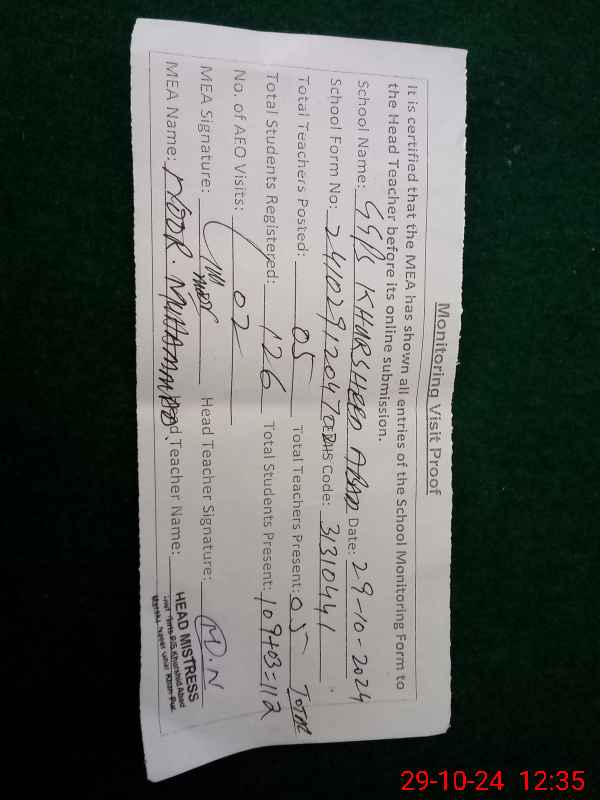 Monitoring Visit Proof
It is certified that the MEA has shown all entries of the School Monitoring Form to
the Head Teacher before its online submission.
School Name: GGPS KHURSHEED ABAD Date: 29-10-2024
School Form No: Code: 31310441
Total Teachers Posted: 05 Total Teachers Present: 05 TOTAL
Total Students Registered: 126 Total Students Present: 109+03=112
No. of AEO Visits: 02
MEA Signature: Head Teacher Signature: M.N
MEA Name: NOOR. MUHAMMAD. Head Teacher Name:
HEAD MISTRESS
Khurshid Abad
29-10-24 12:35